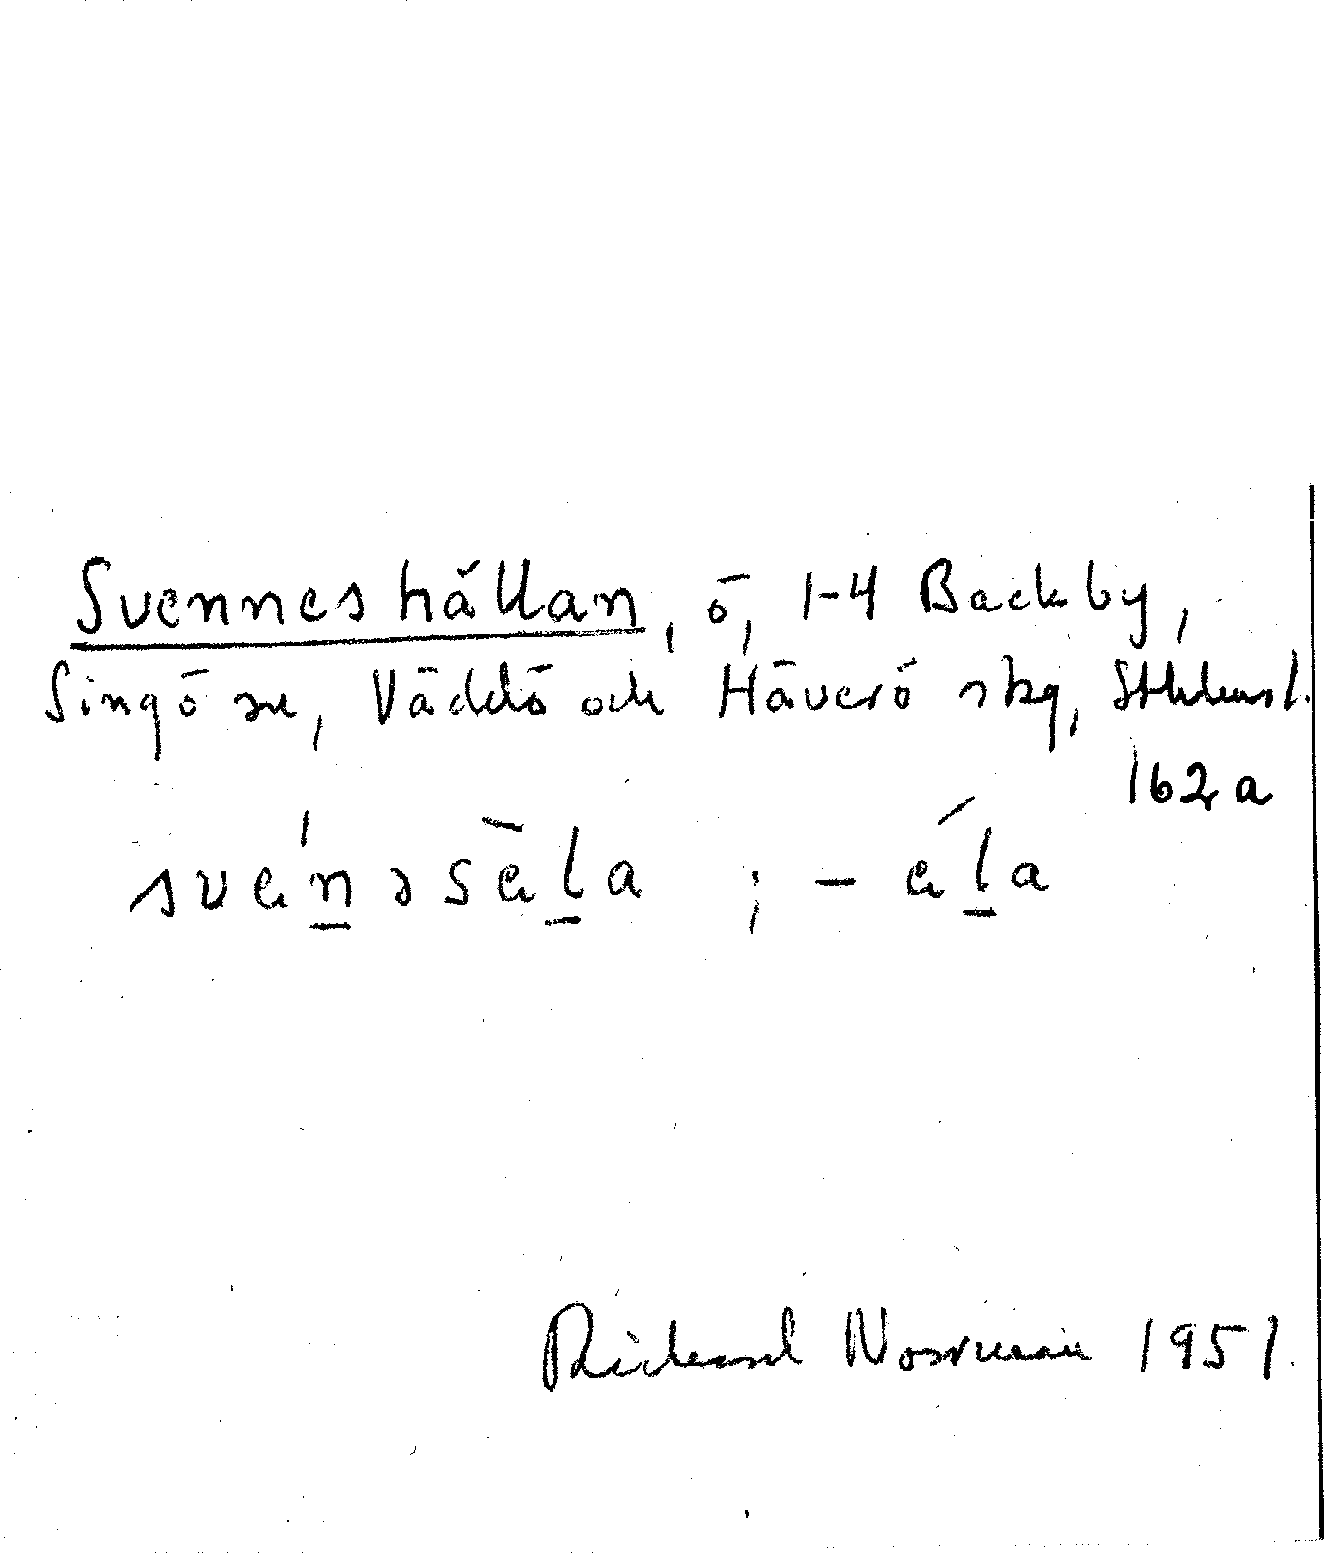 Svenneshällan, ö, 1-4 Backby,
Singö sn, Väddö och Häverö skg, Sthlmsl.
162 a
sven̲əsäl̲a ; - äl̲a
Rickard Norrman 1951